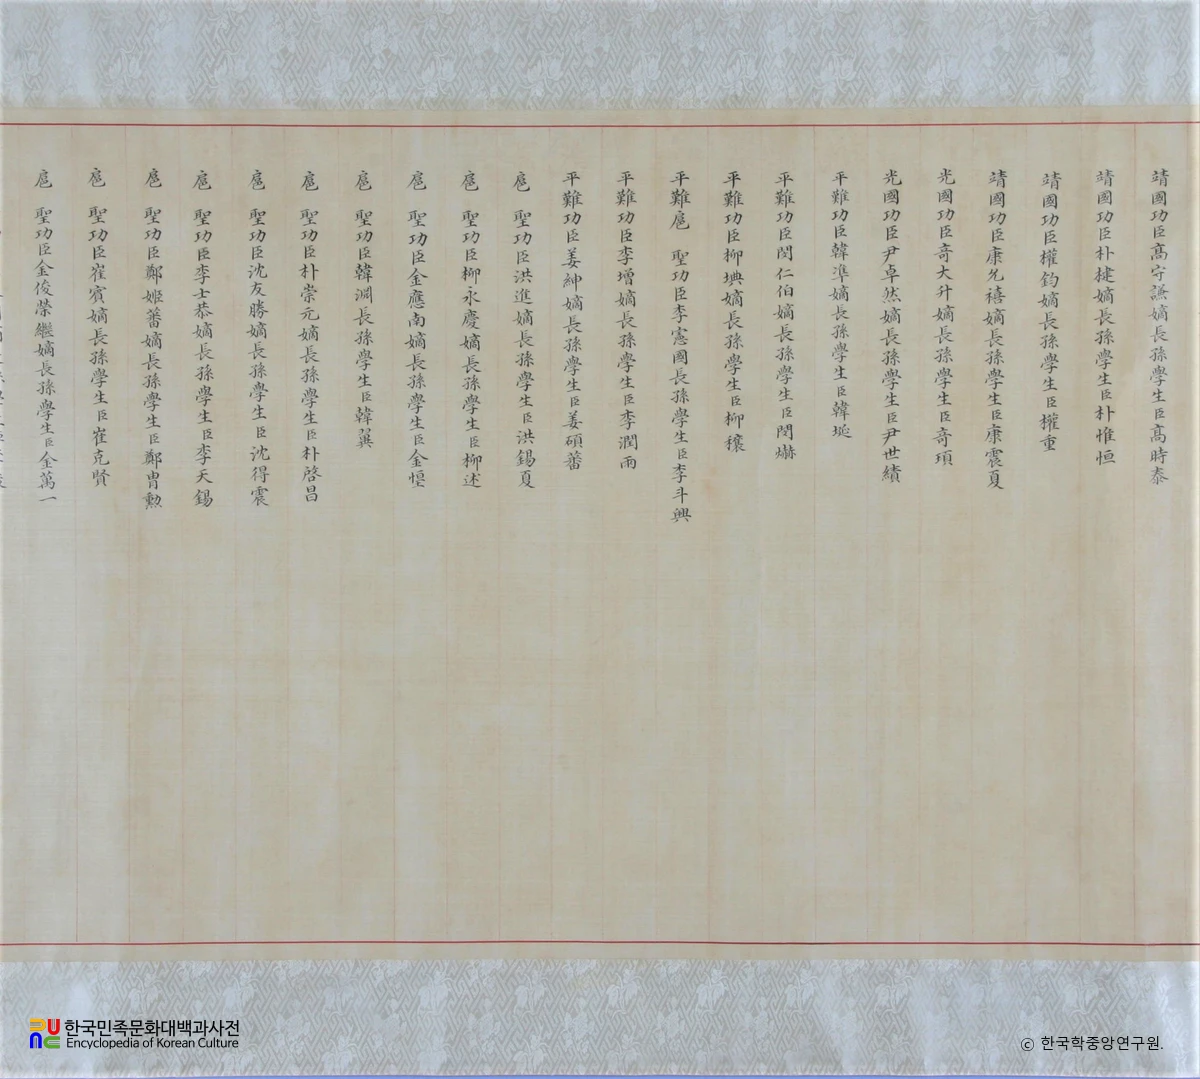 靖國功臣高守謙嫡長孫學生臣高時泰
靖國功臣朴楗嫡長孫學生臣朴惟恒
靖國功臣權鈞嫡長孫學生臣權重
靖國功臣康允禧嫡長孫學生臣康震夏
光國功臣奇大升嫡長孫學生臣奇頊
光國功臣尹卓然嫡長孫學生臣尹世績
平難功臣韓準嫡長孫學生臣韓埏
平難功臣閔仁伯嫡長孫學生臣閔爀
平難功臣柳㙉嫡長孫學生臣柳穰
平難扈 聖功臣李憲國長孫學生臣李斗興
平難功臣李增嫡長孫學生臣李潤雨
平難功臣姜紳嫡長孫學生臣姜碩蕃
扈 聖功臣洪進嫡長孫學生臣洪錫夏
扈 聖功臣柳永慶嫡長孫學生臣柳述
扈 聖功臣金應南嫡長孫學生臣金
扈 聖功臣韓淵長孫學生臣韓翼
扈 聖功臣朴崇元嫡長孫學生臣朴啓昌
扈 聖功臣沈友勝嫡長孫學生臣沈得震
扈 聖功臣李士恭嫡長孫學生臣李天錫
扈 聖功臣鄭姬蕃嫡長孫學生臣鄭胄勳
扈 聖功臣崔賓嫡長孫學生臣崔克賢
扈 聖功臣金俊榮繼嫡長孫學生臣金萬一
한국민족문화대백과사전
Encyclopedia of Korean Culture
ⓒ 한국학중앙연구원.